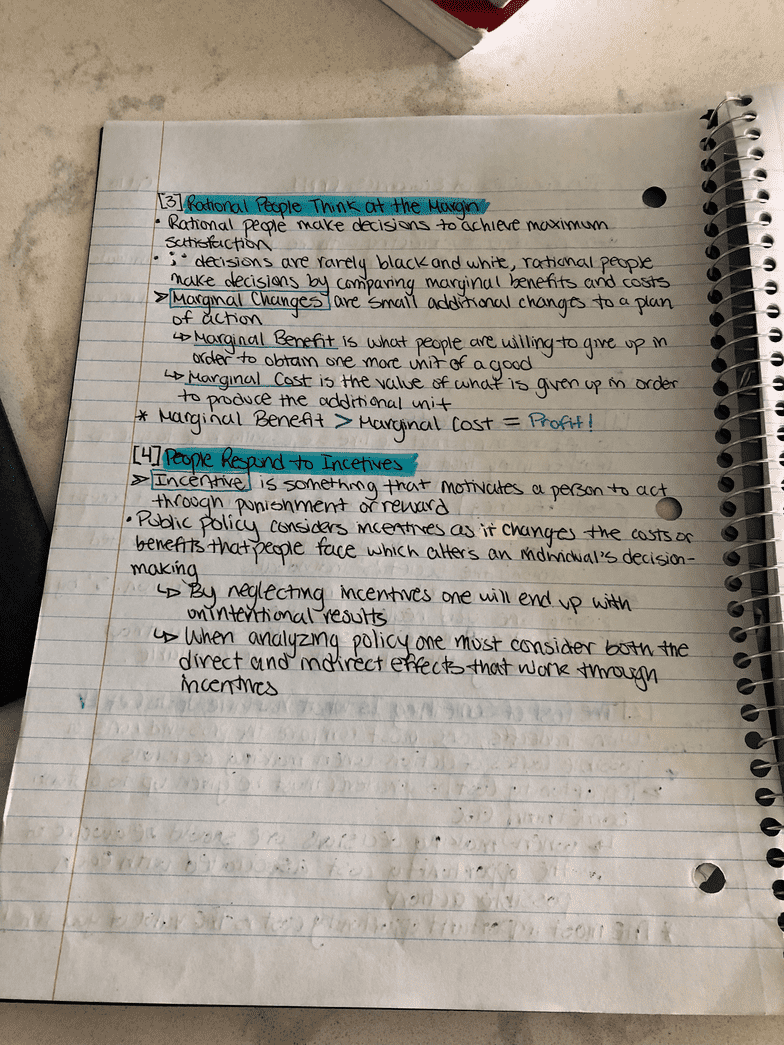 [3] Rational People Think at the Margin
• Rational people make decisions to achieve maximum
satisfaction
• ∵ decisions are rarely black and white, rational people
make decisions by comparing marginal benefits and costs
➢ Marginal Changes are small additional changes to a plan
of action
↳ Marginal Benefit is what people are willing to give up in
order to obtain one more unit of a good
↳ Marginal Cost is the value of what is given up in order
to produce the additional unit
* Marginal Benefit > Marginal Cost = Profit!
[4] People Respond to Incetives
➢ Incentive is something that motivates a person to act
through punishment or reward
• Public policy considers incentives as it changes the costs or
benefits that people face which alters an individual's decision-
making
↳ By neglecting incentives one will end up with
unintentional results
↳ When analyzing policy one must consider both the
direct and indirect effects that work through
incentives